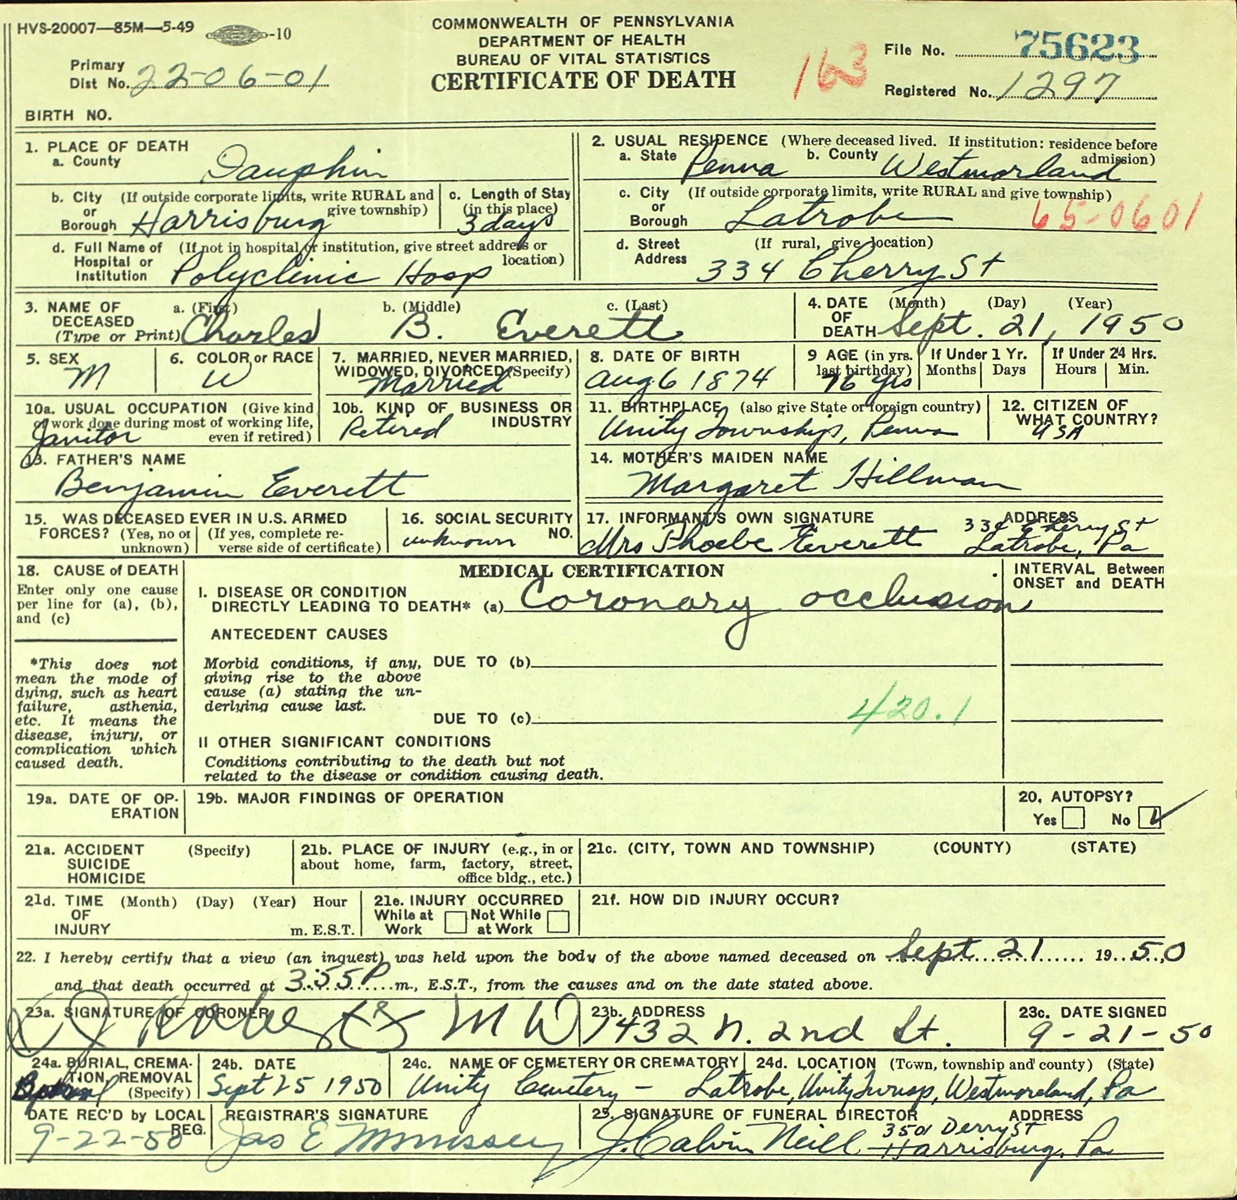 HVS-20007—85M—5-49 -10
COMMONWEALTH OF PENNSYLVANIA
DEPARTMENT OF HEALTH
BUREAU OF VITAL STATISTICS
CERTIFICATE OF DEATH
163
File No. 75623
Registered No. 1297
Primary
Dist No. 22-06-01
BIRTH NO.
1. PLACE OF DEATH
a. County Dauphin
b. City (If outside corporate limits, write RURAL and
or give township)
Borough Harrisburg
c. Length of Stay
(in this place)
3 days
d. Full Name of (If not in hospital or institution, give street address or
Hospital or location)
Institution Polyclinic Hosp
2. USUAL RESIDENCE (Where deceased lived. If institution: residence before
admission)
a. State Penna b. County Westmorland
c. City (If outside corporate limits, write RURAL and give township)
or
Borough Latrobe 65-0601
d. Street (If rural, give location)
Address 334 Cherry St
3. NAME OF a. (First) b. (Middle) c. (Last)
DECEASED
(Type or Print) Charles B. Everett
4. DATE (Month) (Day) (Year)
OF
DEATH Sept. 21, 1950
5. SEX
M
6. COLOR or RACE
W
7. MARRIED, NEVER MARRIED,
WIDOWED, DIVORCED (Specify)
Married
8. DATE OF BIRTH
Aug 6 1874
9 AGE (in yrs.
last birthday)
76 yrs
If Under 1 Yr.
Months Days
If Under 24 Hrs.
Hours Min.
10a. USUAL OCCUPATION (Give kind
of work done during most of working life,
even if retired)
Janitor
10b. KIND OF BUSINESS OR
INDUSTRY
Retired
11. BIRTHPLACE (also give State or foreign country)
Unity Township, Penna
12. CITIZEN OF
WHAT COUNTRY?
USA
13. FATHER'S NAME
Benjamin Everett
14. MOTHER'S MAIDEN NAME
Margaret Hillman
15. WAS DECEASED EVER IN U.S. ARMED
FORCES? (Yes, no or (If yes, complete re-
unknown) verse side of certificate)
16. SOCIAL SECURITY
NO.
unknown
17. INFORMANT'S OWN SIGNATURE ADDRESS
Mrs Phoebe Everett 334 Cherry St
Latrobe, Pa
18. CAUSE of DEATH
Enter only one cause
per line for (a), (b),
and (c)
*This does not
mean the mode of
dying, such as heart
failure, asthenia,
etc. It means the
disease, injury, or
complication which
caused death.
MEDICAL CERTIFICATION
INTERVAL Between
ONSET and DEATH
I. DISEASE OR CONDITION
DIRECTLY LEADING TO DEATH* (a) Coronary occlusion
ANTECEDENT CAUSES
Morbid conditions, if any, DUE TO (b)
giving rise to the above
cause (a) stating the un-
derlying cause last.
DUE TO (c) 420.1
II OTHER SIGNIFICANT CONDITIONS
Conditions contributing to the death but not
related to the disease or condition causing death.
19a. DATE OF OP-
ERATION
19b. MAJOR FINDINGS OF OPERATION
20. AUTOPSY?
Yes No ✓
21a. ACCIDENT (Specify)
SUICIDE
HOMICIDE
21b. PLACE OF INJURY (e.g., in or
about home, farm, factory, street,
office bldg., etc.)
21c. (CITY, TOWN AND TOWNSHIP) (COUNTY) (STATE)
21d. TIME (Month) (Day) (Year) Hour
OF
INJURY m. E.S.T.
21e. INJURY OCCURRED
While at Not While
Work at Work
21f. HOW DID INJURY OCCUR?
22. I hereby certify that a view (an inquest) was held upon the body of the above named deceased on Sept 21 19 50
and that death occurred at 3:55 P m., E.S.T., from the causes and on the date stated above.
23a. SIGNATURE OF CORONER
23b. ADDRESS
1432 N. 2nd St.
23c. DATE SIGNED
9-21-50
24a. BURIAL, CREMA-
TION, REMOVAL
(Specify)
24b. DATE
Sept 25 1950
24c. NAME OF CEMETERY OR CREMATORY
Unity Cemetery —
24d. LOCATION (Town, township and county) (State)
Latrobe, Unity Twnsp, Westmoreland, Pa
DATE REC'D by LOCAL
REG.
9-22-50
REGISTRAR'S SIGNATURE
Jas E Morrissey
25. SIGNATURE OF FUNERAL DIRECTOR ADDRESS
J. Calvin Neill 3501 Derry St
Harrisburg, Pa